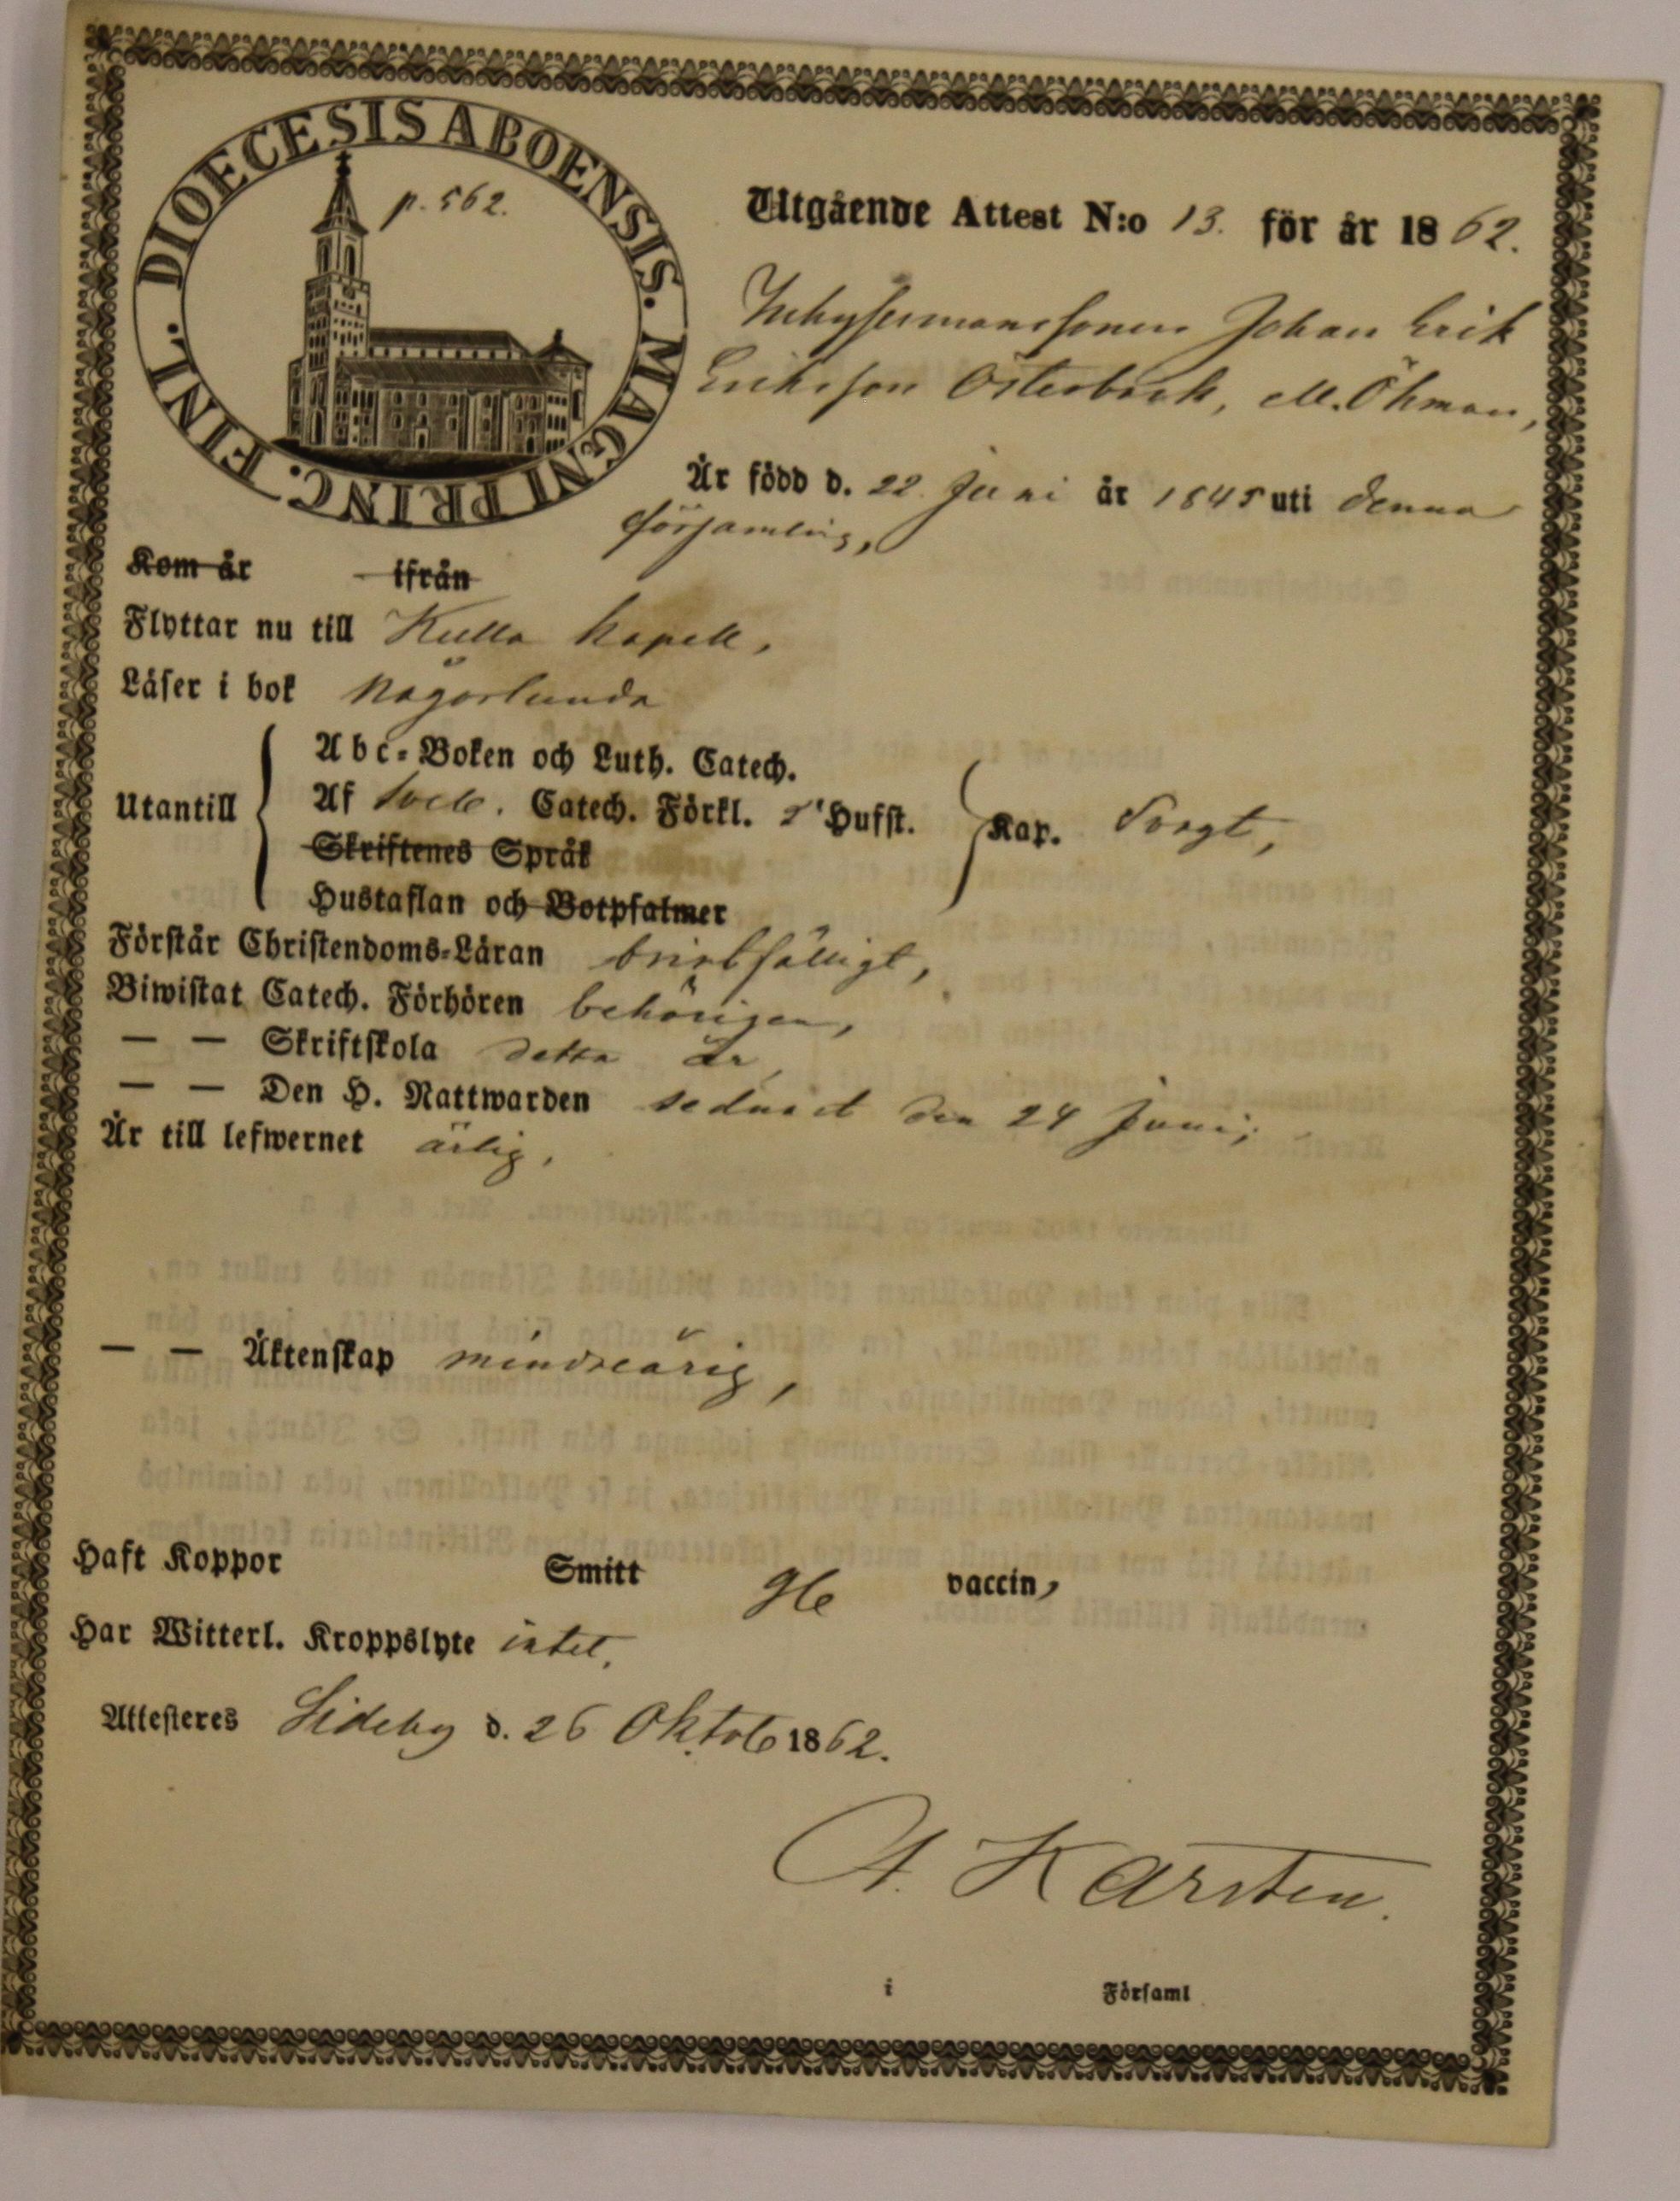 DIOECESIS ABOENSIS. MAGNI PRINC. FINL.
p. 562.
Utgående Attest N:o 13. för år 1862.
Inhysesmanssonen Johan Erik
Eriksson Österback, ell. Öhman,
Är född d. 22 Juni år 1845 uti denna
församling,
Kom år ifrån
Flyttar nu till Kulla kapell,
Läser i bok någorlunda
Utantill
Abc-Boken och Luth. Catech.
Af Catech. Förkl. Hufst.
Skriftenes Språk
Hustaflan och Botpsalmer
Kap. Svagt,
Förstår Christendoms-Läran
Biwistat Catech. Förhören behörigen,
— — Skriftskola detta år,
— — Den H. Nattwarden sednast den 24 Juni;
Är till lefwernet ärlig,
— — Äktenskap minderårig,
Haft Koppor Smitt vaccin,
Har Witterl. Kroppslyte intet.
Attesteres Sideby d. 26 Oktob 1862.
A. Karsten.
i Församl